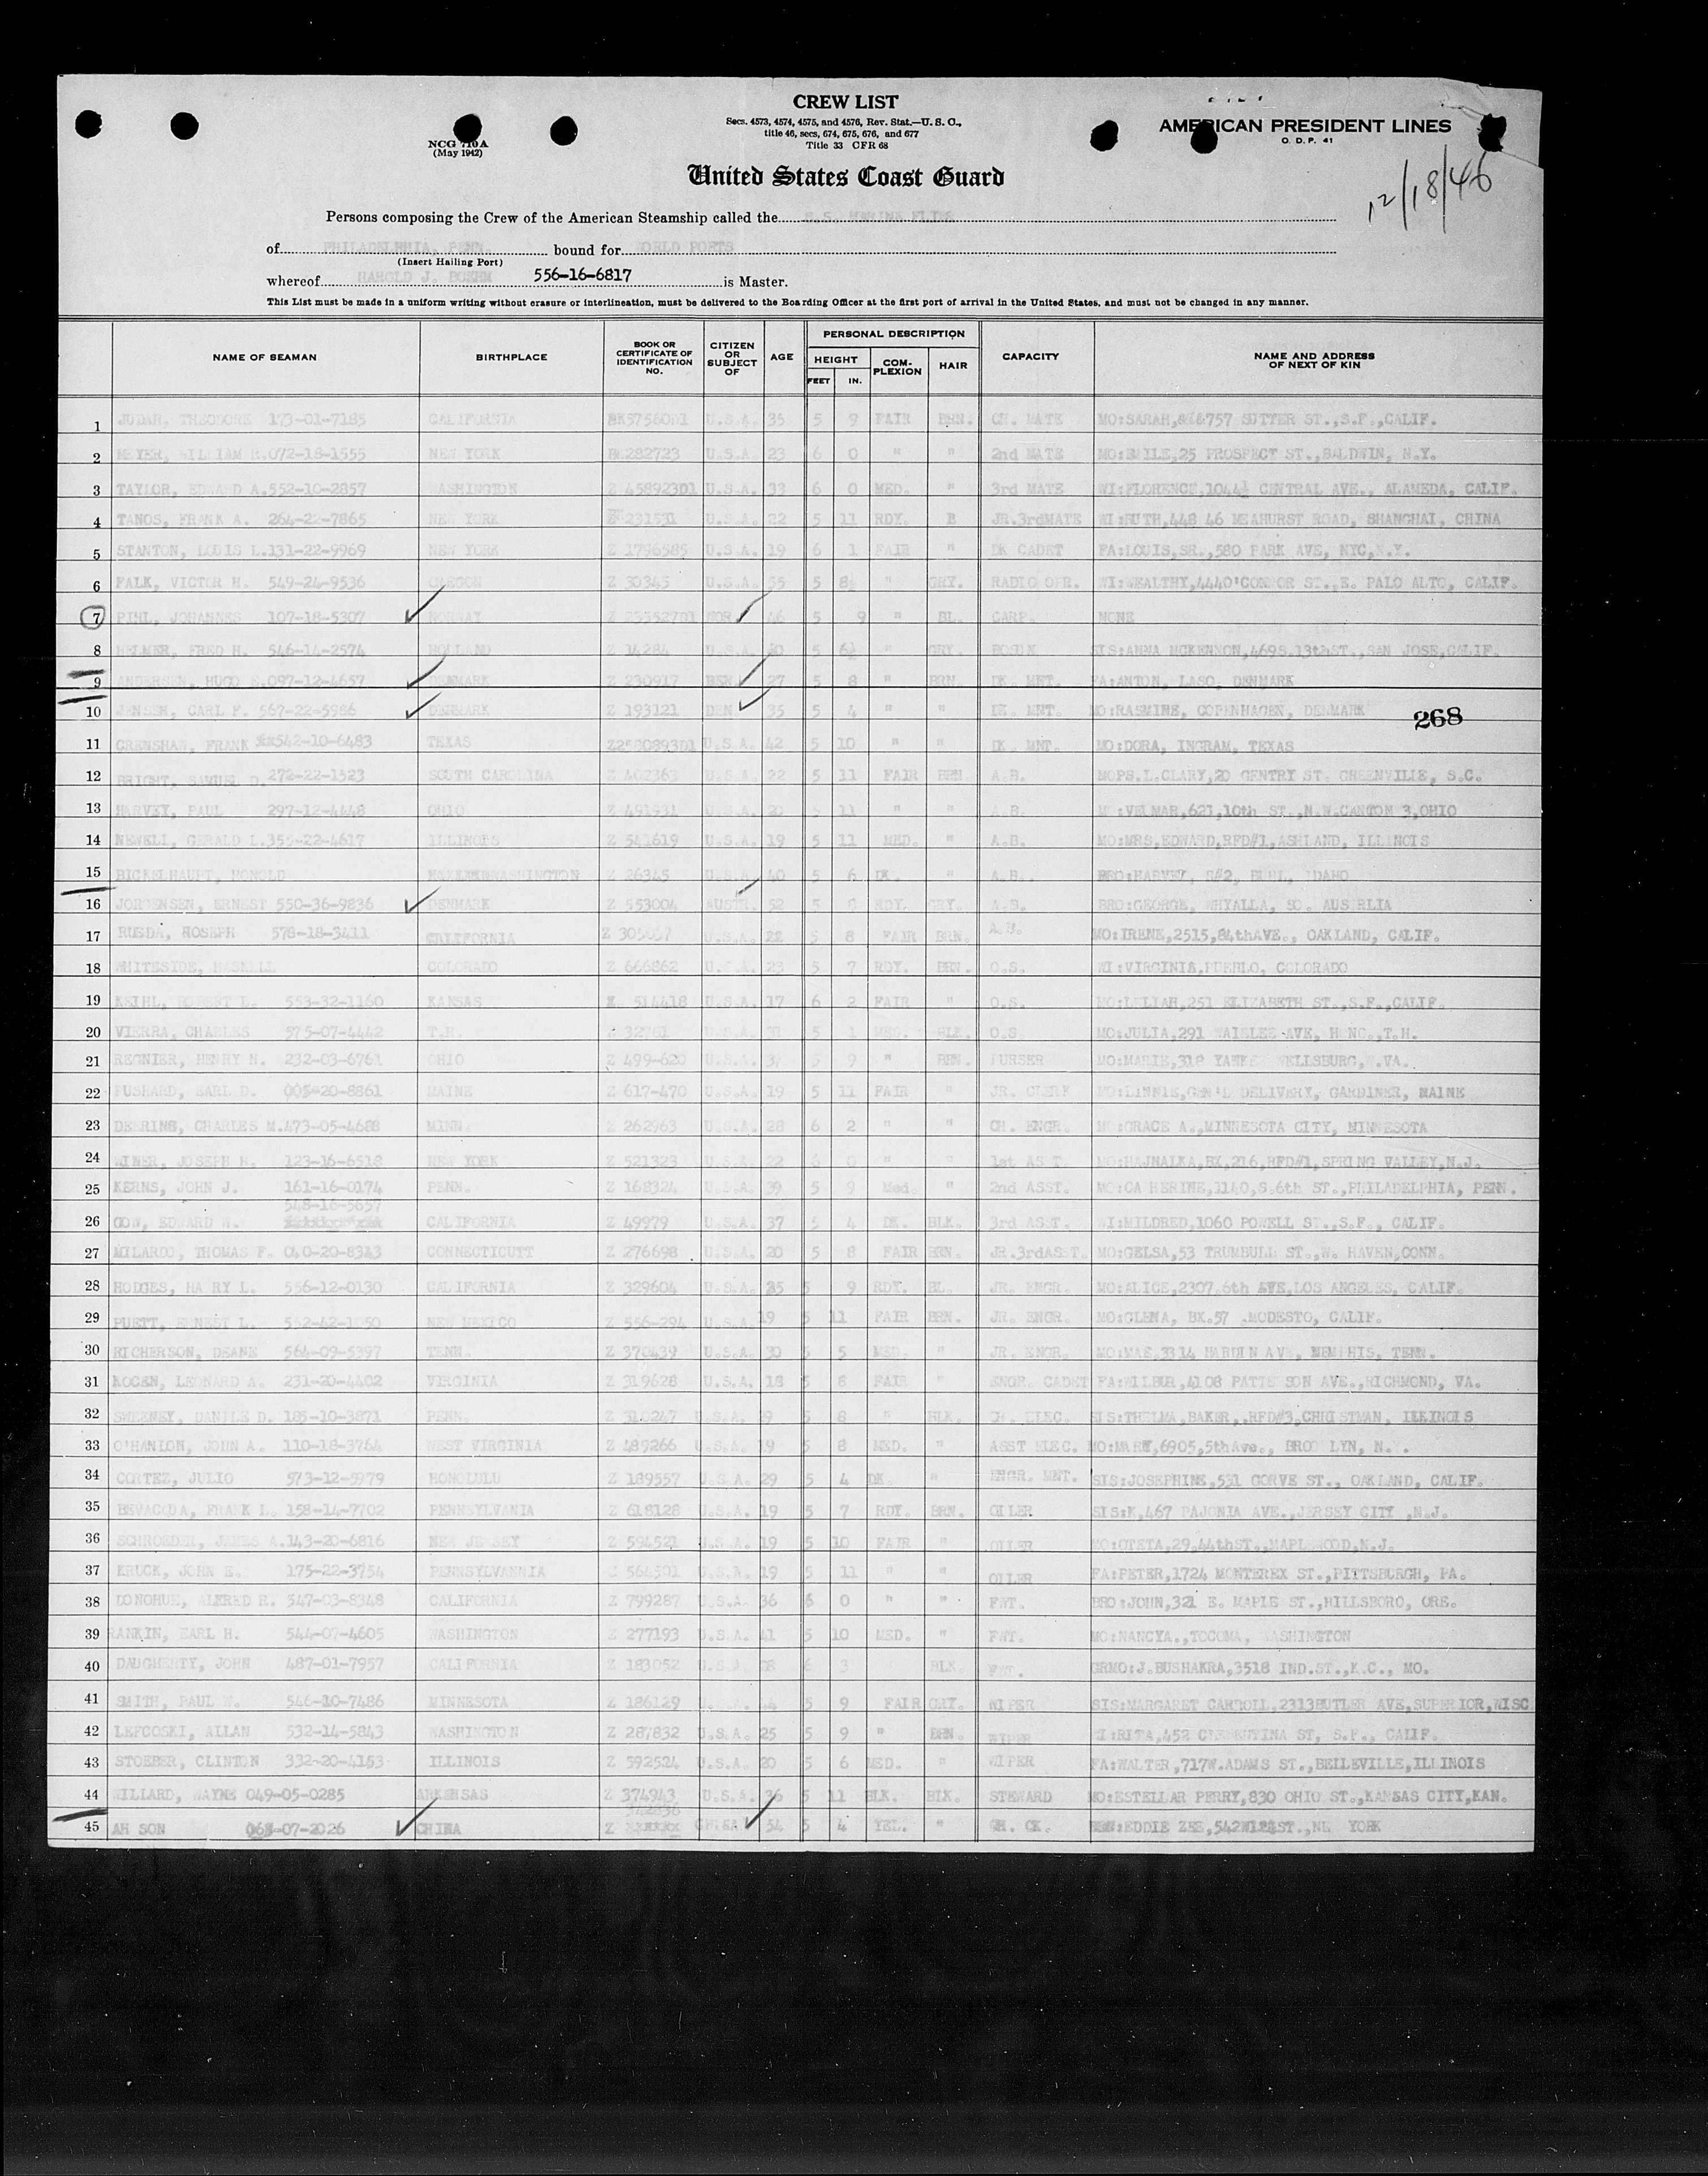 CREW LIST
Secs. 4573, 4574, 4575, and 4576, Rev. Stat.—U. S. C.,
title 46, secs, 674, 675, 676, and 677
Title 33 CFR 68
NCG 710A
(May 1942)
AMERICAN PRESIDENT LINES
O. D. P. 41
United States Coast Guard
12/18/46
Persons composing the Crew of the American Steamship called the S.S. MARINE
of PHILADELPHIA, PENN. bound for WORLD PORTS
(Insert Hailing Port)
whereof HAROLD J. 556-16-6817 is Master.
This List must be made in a uniform writing without erasure or interlineation, must be delivered to the Boarding Officer at the first port of arrival in the United States, and must not be changed in any manner.
NAME OF SEAMAN BIRTHPLACE BOOK OR CERTIFICATE OF IDENTIFICATION NO. CITIZEN OR SUBJECT OF AGE PERSONAL DESCRIPTION HEIGHT FEET IN. COMPLEXION HAIR CAPACITY NAME AND ADDRESS OF NEXT OF KIN
1 JUDAH, THEODORE 173-01-7185 CALIFORNIA U.S.A. 35 5 9 FAIR BRN. CH. MATE MO:SARAH, 757 SUTTER ST.,S.F.,CALIF.
2 MEYER, WILLIAM R.072-18-1555 NEW YORK BK282723 U.S.A. 23 6 0 " " 2nd MATE 25 PROSPECT ST.,BALDWIN, N.Y.
3 TAYLOR, EDWARD A.552-10-2857 WASHINGTON Z 458923D1 U.S.A. 33 6 0 MED. " 3rd MATE WI:FLORENCE,1044½ CENTRAL AVE., ALAMEDA, CALIF.
4 TANOS, FRANK A. 264-22-7865 NEW YORK 231531 U.S.A. 22 5 11 RDY. B JR.3rdMATE WI:RUTH,448 46 MEAHURST ROAD, SHANGHAI, CHINA
5 STANTON, LOUIS L.131-22-9969 NEW YORK Z 1796585 U.S.A. 19 6 1 FAIR " DK CADET FA:LOUIS,SR.,580 PARK AVE, NYC,N.Y.
6 FALK, VICTOR H. 549-24-9536 OREGON Z 30345 U.S.A. 55 5 8½ " GRY. RADIO OPR. WI:WEALTHY,4440'CONNOR ST.,E. PALO ALTO, CALIF.
7 PIHL, JOHANNES 107-18-5307 NORWAY Z 235527D1 NOR 46 5 9 " BL. CARP. NONE
8 HELMER, FRED H. 546-14-2574 HOLLAND Z 14284 U.S.A. 5 6½ " GRY. BOSUN SIS:ANNA MCKENNON,469S.13thST.,SAN JOSE,CALIF.
9 ANDERSEN, HUGO E.097-12-4657 DENMARK Z 230917 DEN. 27 5 8 " BRN. DK. MNT. FA:ANTON, LASO, DENMARK
10 JENSEN, CARL F. 567-22-5986 DENMARK Z 193121 DEN 35 5 4 " " DK. MNT. MO:RASMINE, COPENHAGEN, DENMARK
268
11 CRENSHAW, FRANK 542-10-6483 TEXAS U.S.A. 42 5 10 " " DK. MNT. MO:DORA, INGRAM, TEXAS
12 BRIGHT, SAMUEL D.272-22-1523 SOUTH CAROLINA Z 402363 U.S.A. 22 5 11 FAIR BRN. A.B. MOPS.L.CLARY,20 GENTRY ST. GREENVILLE, S.C.
13 HARVEY, PAUL 297-12-4448 OHIO Z 491931 U.S.A. 20 5 11 " " A.B. 621,10th ST.,N.W.CANTON 3,OHIO
14 NEWELL, GERALD L.355-22-4617 ILLINOIS Z 541619 U.S.A. 19 5 11 MED. " A.B. MO:MRS,EDWARD,RFD#1,ASHLAND, ILLINOIS
15 BICKELHAUPT, RONOLD WASHINGTON Z 26345 U.S.A. 40 5 6 DK. " A.B. BRO:HARVEY, R#2, BUHL, IDAHO
16 JORGENSEN, ERNEST 550-36-9836 DENMARK Z 553004 AUSTR. 52 5 8 RDY. GRY. A.B. BRO:GEORGE, WHYALLA, SO. AUSTRLIA
17 RUEDA, HOSEPH 578-18-3411 CALIFORNIA U.S.A. 22 5 8 FAIR BRN. A.B. MO:IRENE,2515,84thAVE., OAKLAND, CALIF.
18 WHITESIDE, COLORADO Z 666862 U.S.A. 23 5 7 RDY. BRN. O.S. WI:VIRGINIA,PUEBLO, COLORADO
19 KEIHL, ROBERT L. 553-32-1160 KANSAS 514418 U.S.A. 17 6 2 FAIR " O.S. MO:LILLIAH,251 ELIZABETH ST.,S.F.,CALIF.
20 VIERRA, CHARLES 575-07-4442 T.H. U.S.A. 31 5 1 MED. BLK. O.S. MO:JULIA,291 WAIALEE AVE, HONO.,T.H.
21 REGNIER, HENRY N. 232-03-6761 OHIO Z 499-620 U.S.A. 5 9 " BRN. PURSER MO:MARIE,318 YANKE WELLSBURG, .VA.
22 PUSHARD, EARL D. 005-20-8861 MAINE Z 617-470 U.S.A. 19 5 11 FAIR " JR. CLERK MO:LINNIE,GEN'L DELIVERY, GARDINER, MAINE
23 DEERING, CHARLES M.473-05-4688 MINN. Z 262963 U.S.A. 28 6 2 " " CH. ENGR. MO:GRACE A.,MINNESOTA CITY, MINNESOTA
24 WINER, JOSEPH H. 123-16-6518 NEW YORK Z 521323 U.S.A. 22 6 0 " " 1st AS T. MO:HAJNALKA,BX,216,RFD#1,SPRING VALLEY,N.J.
25 KERNS, JOHN J. 161-16-0174 PENN. Z 168324 U.S.A. 39 5 9 Med. " 2nd ASST. MO:CA HERINE,1140,S.6th ST.,PHILADELPHIA, PENN.
26 GOW, EDWARD W. 548-16-5657 CALIFORNIA Z 49979 U.S.A. 37 5 4 DK. BLK. 3rd ASST. WI:MILDRED,1060 POWELL ST.,S.F., CALIF.
27 MILARDO, THOMAS F. 040-20-8343 CONNECTICUTT Z 276698 U.S.A. 20 5 8 FAIR BRN. JR.3rdASST. MO:GELSA,53 TRUMBULL ST.,W. HAVEN,CONN.
28 HODGES, HA RY L. 556-12-0130 CALIFORNIA Z 329604 U.S.A. 25 5 9 RDY. BL. JR. ENGR. MO:ALICE,2307,6th AVE,LOS ANGELES, CALIF.
29 PUETT, ERNEST L. 552-42-1050 NEW MEXICO Z 556-294 U.S.A. 19 5 11 FAIR BRN. JR. ENGR. MO:GLENA, BX.57 ,MODESTO, CALIF.
30 RICHERSON, DEANE 564-09-5397 TENN. Z 370439 U.S.A. 30 5 5 MED. " JR. ENGR. MO:MAE,3314 HARDIN AVE, MEMPHIS, TENN.
31 KOCEN, LEONARD A. 231-20-4402 VIRGINIA Z 319628 U.S.A. 18 5 8 FAIR " ENGR. CADET FA:WILBUR,4108 PATTE SON AVE.,RICHMOND, VA.
32 SWEENEY, DANILE D. 185-10-3871 PENN. Z 310247 U.S.A. 5 8 " BLK. CH. ELEC. SIS:THELMA,BAKER,.RFD#3,CHRISTMAN, ILLINOIS
33 O'HANLON, JOHN A. 110-18-3764 WEST VIRGINIA Z 489266 U.S.A. 19 5 8 MED. " ASST ELEC. MO:MARY,6905,5thAve., BROO LYN, N. .
34 CORTEZ, JULIO 573-12-5979 HONOLULU Z 189557 U.S.A. 29 5 4 DK. " ENGR. MNT. SIS:JOSEPHINE,531 GORVE ST., OAKLAND, CALIF.
35 BEVACQDA, FRANK L. 158-14-7702 PENNSYLVANIA Z 618128 U.S.A. 19 5 7 RDY. BRN. OILER SIS:K,467 PAJONIA AVE.,JERSEY CITY ,N.J.
36 SCHROEDER, JAMES A.143-20-6816 NEW JERSEY Z 594521 U.S.A. 19 5 10 FAIR " OILER MO:OTETA,29,44thST.,MAPLEWOOD,N.J.
37 KRUCK, JOHN E. 175-22-3754 PENNSYLVANNIA 564501 U.S.A. 19 5 11 " " OILER FA:PETER,1724 MONTEREX ST.,PITTSBURGH, PA.
38 DONOHUE, ALFRED R. 547-03-8348 CALIFORNIA Z 799287 U.S.A. 36 6 0 " " FWT. BRO:JOHN,321 E. MAPLE ST.,HILLSBORO, ORE.
39 RANKIN, EARL H. 544-07-4605 WASHINGTON Z 277193 U.S.A. 41 5 10 MED. " FWT. MO:NANCYA.,TOCOMA, WASHINGTON
40 DAUGHERTY, JOHN 487-01-7957 CALIFORNIA Z 183052 U.S.A. 28 6 3 BLK. FWT. GRMO:J.BUSHAKRA,3518 IND.ST.,K.C., MO.
41 SMITH, PAUL W. 546-10-7486 MINNESOTA Z 186129 5 9 FAIR GRY. WIPER SIS:MARGARET CARROLL,2313BUTLER AVE,SUPERIOR,WISC
42 LEFCOSKI, ALLAN 532-14-5843 WASHINGTON Z 287832 U.S.A. 25 5 9 " BRN. WIPER WI:RITA,452 CLEMENTINA ST, S.F., CALIF.
43 STOEBER, CLINTON 332-20-4153 ILLINOIS Z 592524 U.S.A. 20 5 6 MED. " WIPER FA:WALTER,717W.ADAMS ST.,BELLEVILLE,ILLINOIS
44 WILLARD, WAYNE 049-05-0285 ARKENSAS Z 374943 U.S.A. 36 5 11 BLK. BLK. STEWARD MO:ESTELLAR PERRY,830 OHIO ST.,KANSAS CITY,KAN.
45 AH SON 068-07-2026 CHINA Z 342836 CHINA 54 5 4 YEL. " CH. CK. EDDIE ZEE, YORK